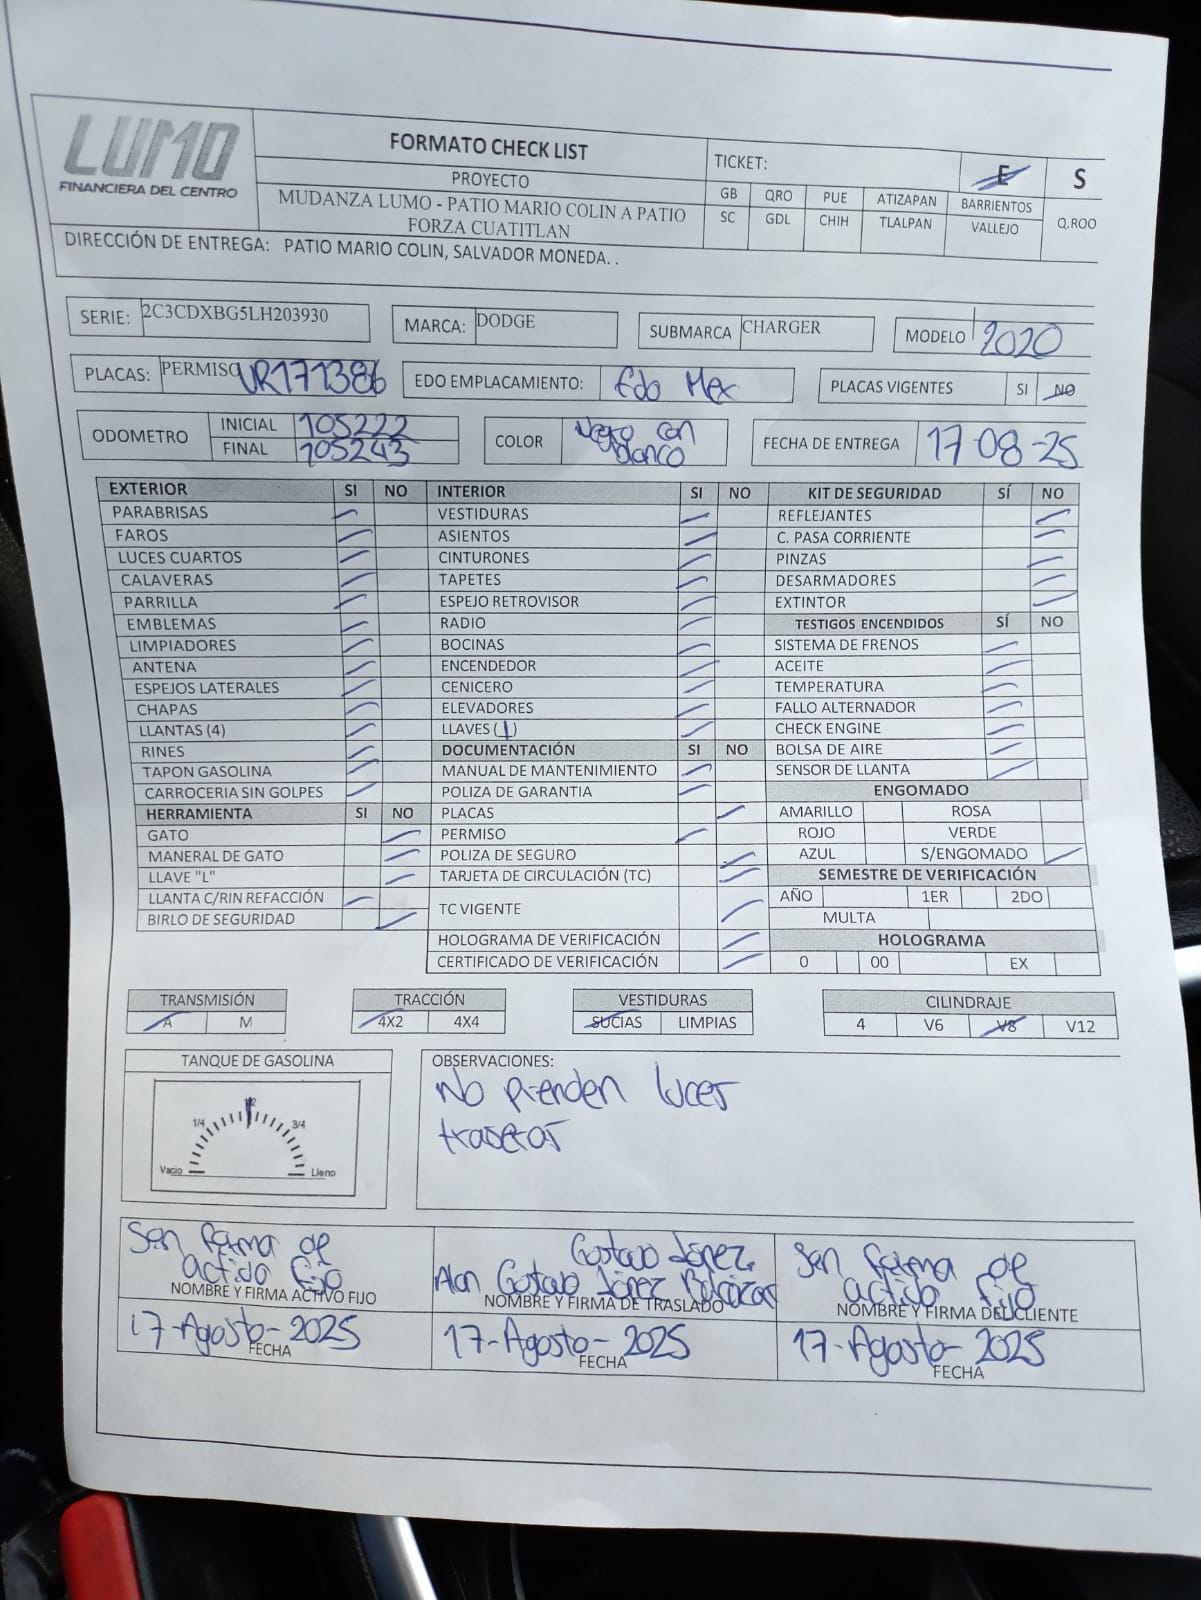 LUMO
FINANCIERA DEL CENTRO
FORMATO CHECK LIST
PROYECTO
MUDANZA LUMO - PATIO MARIO COLIN A PATIO
FORZA CUATITLAN
TICKET:
E
S
GB QRO PUE ATIZAPAN BARRIENTOS
SC GDL CHIH TLALPAN VALLEJO Q.ROO
DIRECCIÓN DE ENTREGA: PATIO MARIO COLIN, SALVADOR MONEDA. .
SERIE: 2C3CDXBG5LH203930 MARCA: DODGE SUBMARCA CHARGER MODELO 2020
PLACAS: PERMISO VR171386 EDO EMPLACAMIENTO: Edo Mex PLACAS VIGENTES SI NO
ODOMETRO INICIAL 105222
FINAL 105243
COLOR Negro con
blanco
FECHA DE ENTREGA 17-08-25
EXTERIOR SI NO
PARABRISAS
FAROS
LUCES CUARTOS
CALAVERAS
PARRILLA
EMBLEMAS
LIMPIADORES
ANTENA
ESPEJOS LATERALES
CHAPAS
LLANTAS (4)
RINES
TAPON GASOLINA
CARROCERIA SIN GOLPES
HERRAMIENTA SI NO
GATO
MANERAL DE GATO
LLAVE "L"
LLANTA C/RIN REFACCIÓN
BIRLO DE SEGURIDAD
INTERIOR SI NO
VESTIDURAS
ASIENTOS
CINTURONES
TAPETES
ESPEJO RETROVISOR
RADIO
BOCINAS
ENCENDEDOR
CENICERO
ELEVADORES
LLAVES (1)
DOCUMENTACIÓN SI NO
MANUAL DE MANTENIMIENTO
POLIZA DE GARANTIA
PLACAS
PERMISO
POLIZA DE SEGURO
TARJETA DE CIRCULACIÓN (TC)
TC VIGENTE
HOLOGRAMA DE VERIFICACIÓN
CERTIFICADO DE VERIFICACIÓN
KIT DE SEGURIDAD SÍ NO
REFLEJANTES
C. PASA CORRIENTE
PINZAS
DESARMADORES
EXTINTOR
TESTIGOS ENCENDIDOS SÍ NO
SISTEMA DE FRENOS
ACEITE
TEMPERATURA
FALLO ALTERNADOR
CHECK ENGINE
BOLSA DE AIRE
SENSOR DE LLANTA
ENGOMADO
AMARILLO ROSA
ROJO VERDE
AZUL S/ENGOMADO
SEMESTRE DE VERIFICACIÓN
AÑO 1ER 2DO
MULTA
HOLOGRAMA
0 00 EX
TRANSMISIÓN
A M
TRACCIÓN
4X2 4X4
VESTIDURAS
SUCIAS LIMPIAS
CILINDRAJE
4 V6 V8 V12
TANQUE DE GASOLINA
1/4 1/2 3/4
Vacio Lleno
OBSERVACIONES:
No prenden luces
traseras
Sen firma de
activo fijo
NOMBRE Y FIRMA ACTIVO FIJO
17-Agosto-2025
FECHA
Gustavo López
Alan Gustavo López
NOMBRE Y FIRMA DE TRASLADO
17-Agosto-2025
FECHA
Sen firma de
activo fijo
NOMBRE Y FIRMA DEL CLIENTE
17-Agosto-2025
FECHA